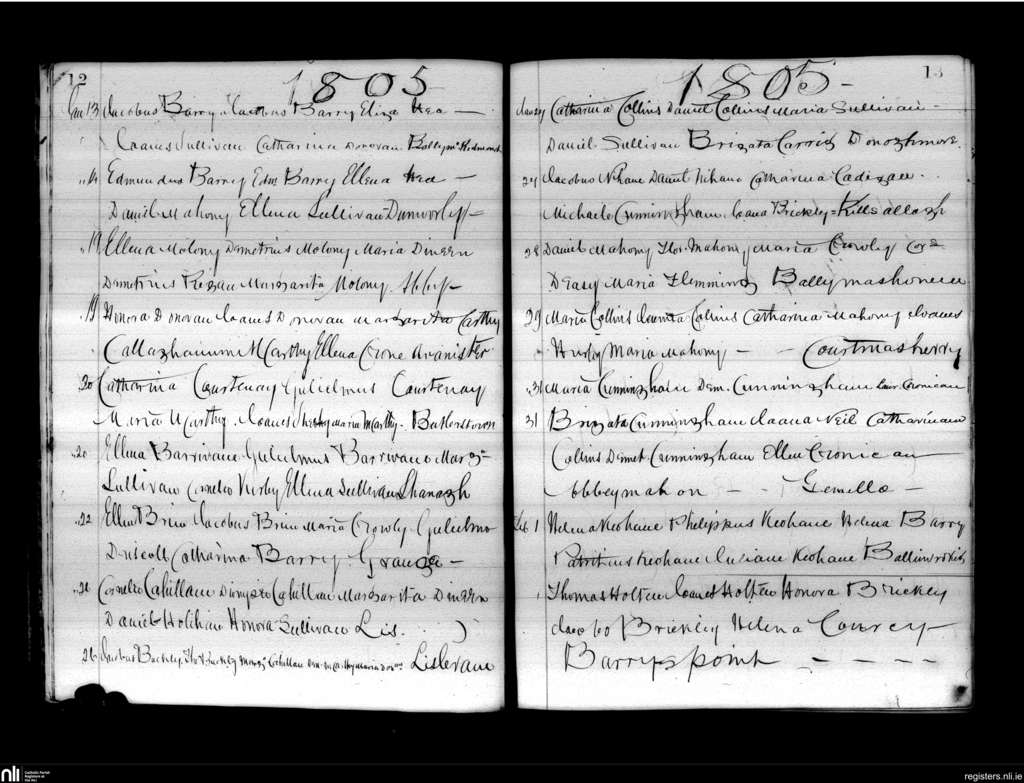 12
1805
Jan 13 Jacobus Barry Jacobus Barry Eliza Hea —
Joanes Sullivan Catharina Donovan Ballymc Redmond
" 14 Edmundus Barry Edm Barry Ellena Hea —
Daniel Mahony Ellena Sullivan Dunworly —
" 19 Ellena Molony Demetrius Molony Maria Dineen
Demetrius Regan Margarita Molony Abbey —
" 19 Honora Donovan Joanes Donovan Margarita Carthy
Callaghanum McCarthy Ellena Crone Aranister
" 20 Catharina Courtenay Gulielmus Courtenay
Maria McCarthy Joanes Maria McCarthy - Butlerstown
" 20 Ellena Barrivane Gulielmus Barrivane Marg
Sullivan Cornelio Hurby Ellena Sullivan Shanagh
" 22 Ellen Brien Jacobus Brien Maria Crowly Gulielmo
Driscoll Catharina Barry - Grange —
" 26 Cornelio Cahillane Dionysio Cahillan Margarita Dineen
Daniel Holihan Honora Sullivan Lis.
26 Jacobus Buckley Buckley Marg Cahillan McCarthy Maria Lislevane
13
1805 -
Jan 27 Catharina Collins Daniel Collins Maria Sullivan -
Daniel Sullivan Brigata Donoghmore.
27 Jacobus Nihane Daniel Nihane Catharina Cadigan .
Michaele Cunningham Joana Brickley = Killsallagh
28 Daniel Mahony Flor Mahony Maria Crowley
Deasy Maria Flemming Ballymashoneen
29 Maria Collins Collins Catharina Mahony Joanes
Hurly Maria Mahony — — Courtmasherry
" 31 Maria Cunningham Dem. Cunningham Cronican
31 Brigata Cunningham Joana Neil Catharina
Collins Demet Cunningham Ellen Cronican
Abbeymahon — - Gemella —
Feb 1 Helena Keohane Philippus Keohane Helena Barry
Patritius Keohane Juliane Keohane
1 Thomas Holten Joanes Holten Honora Brickley
Jacobo Brickley Helena Courcy —
Barryspoint — — — —
nli
Catholic Parish
Registers at
the NLI
registers.nli.ie